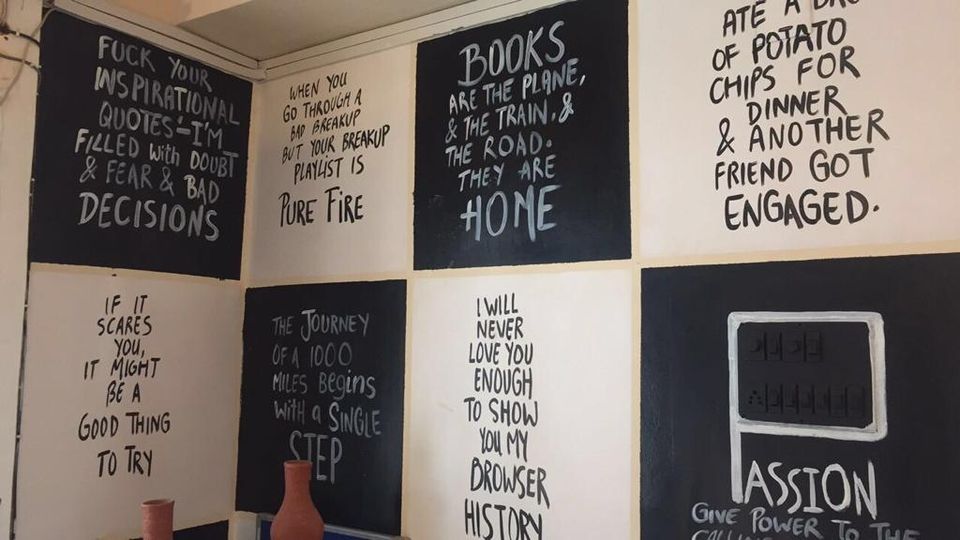 FUCK YOUR
INSPIRATIONAL
QUOTES-I'M
FILLED with DOUBT
& FEAR & BAD
DECISIONS
WHEN YOU
GO THROUGH A
BAD BREAKUP
BUT YOUR BREAKUP
PLAYLIST IS
PURE FIRE
BOOKS
ARE THE PLANE,
& THE TRAIN, &
THE ROAD.
THEY ARE
HOME
ATE A BAG
OF POTATO
CHIPS FOR
DINNER
& ANOTHER
FRIEND GOT
ENGAGED.
IF IT
SCARES
YOU,
IT MIGHT
BE A
GOOD THING
TO TRY
THE JOURNEY
OF A 1000
MILES Begins
With a SINGLE
STEP
I WILL
NEVER
LOVE YOU
ENOUGH
TO SHOW
YOU MY
BROWSER
HISTORY
PASSION
GIVE POWER TO THE